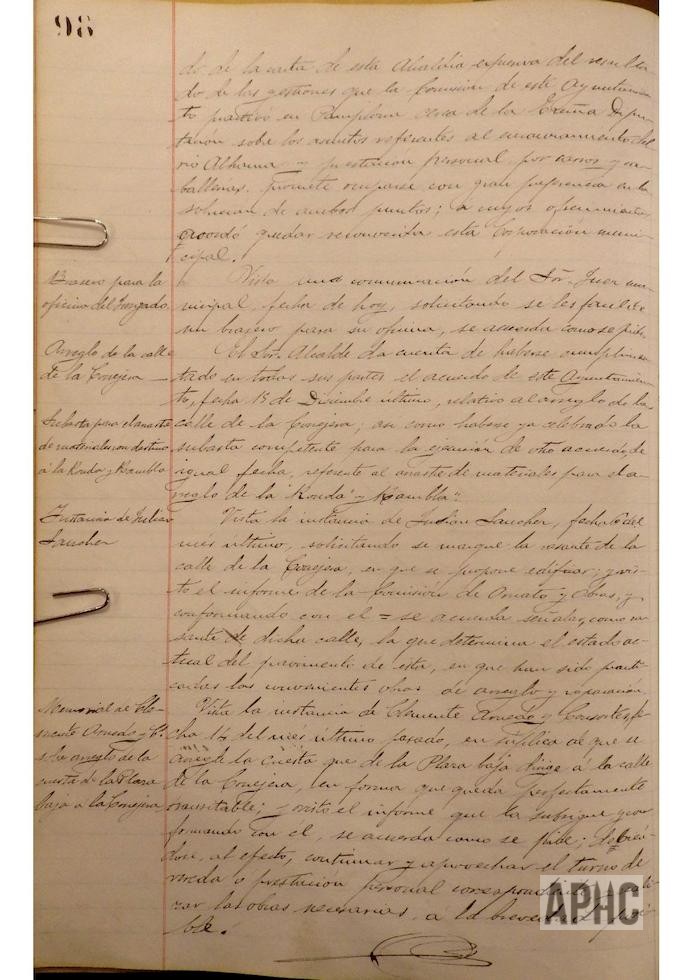 98
do de la carta de esta Alcaldia expresiva del resulta
do de las gestiones que la Comisión de este Ayuntamien
to practicó en Pamplona cerca de la Excma Dipu
tación sobre los asuntos referentes al encauzamiento del
rio Alhama y prestación personal por carros y ca-
ballerias, promete ocuparse con gran preferencia en la
solucion de ambos puntos; a cuyos ofrecimientos
acordó quedar reconocida esta Corporación muni-
cipal.
Brasero para la
oficina del Juzgado.
Vista una comunicación del Sr. Juez mu-
nicipal, fecha de hoy, solicitando se les facilite
un brasero para su oficina, se acuerda como se pide.
Arreglo de la calle
de la Conejera
El Sor. Alcalde da cuenta de haberse cumplimen
tado en todas sus partes el acuerdo de este Ayuntamien
to, fecha 13 de Diciembre último, relativo al arreglo de la
calle de la Conejera; asi como haberse ya celebrado la
subasta competente para la ejecución de otro acuerdo, de
igual fecha, referente al arrastre de materiales para el a-
rreglo de la "Ronda" y "Rambla".
Subasta para el arrastre
de materiales con destino
á la Ronda y Rambla
Instancia de Julian
Sancher
Vista la instancia de Julián Sancher, fecha 6 del
més último, solicitando se marque la rasante de la
calle de la Conejera, en que se propone edificar; y vis-
to el informe de la Comisión de Ornato y Obras, y
conformando con el = se acuerda señalar, como ra
sante de dicha calle, la que determina el estado ac-
tual del pavimento de esta, en que han sido practi-
cadas las convenientes obras de arreglo y reparación.
Memorial de Cle-
mente Arnedo y Cª
sobre arreglo de la
cuesta de la Plaza
baja a la Conejera
Vista la instancia de Clemente Arnedo y Consortes, fe
cha 14 del més último pasado, en súplica de que se
arregle la cuesta que de la Plaza baja dirige á la calle
de la Conejera, en forma que quede perfectamente
transitable; y visto el informe que la subsigue y con
formando con el, se acuerda como se pide; debien
dose, al efecto, continuar y aprovechar el turno de
vereda o prestación personal correspondiente
zar las obras necesarias, á la brevedad posi
ble.
APHC